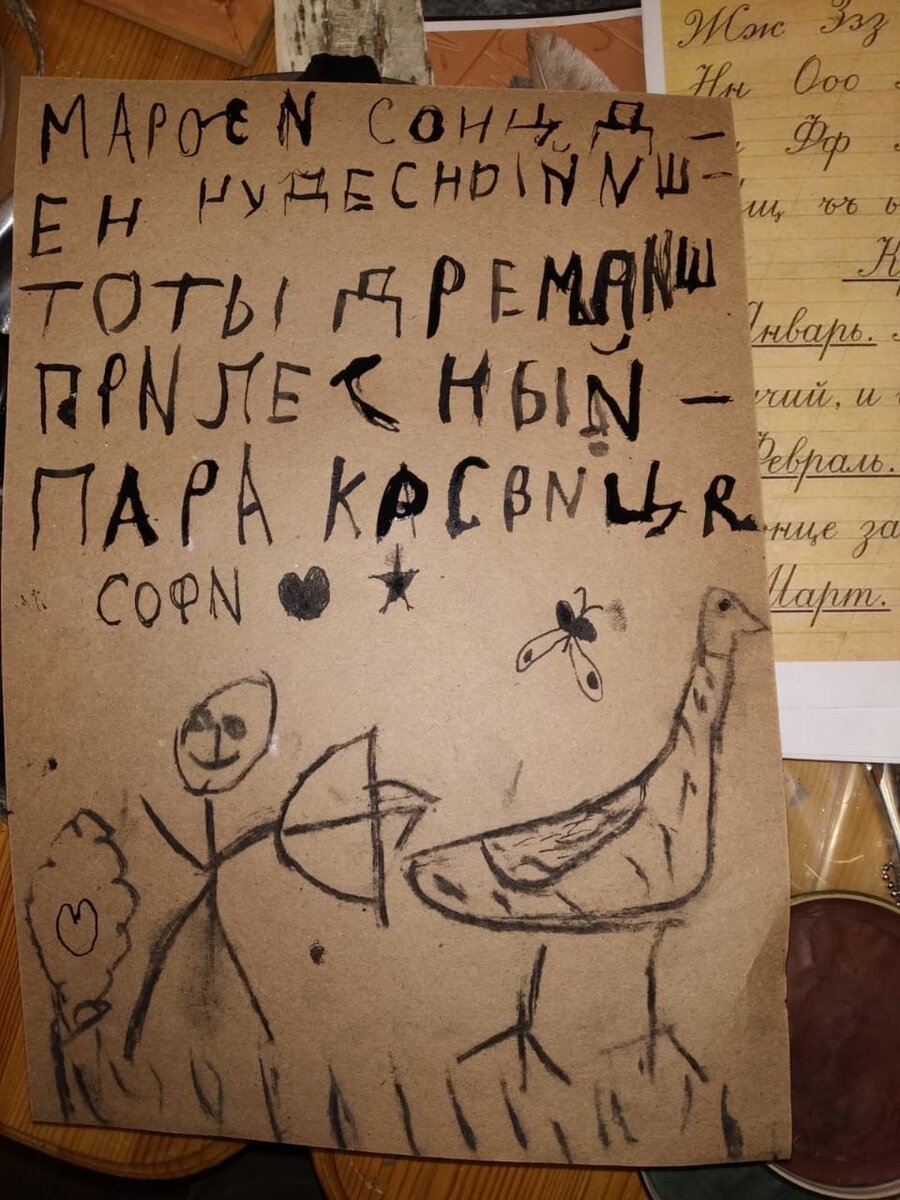 МАРОЕИ СОНЦ Д-
ЕН ЧУДЕСНЫЙ И Ш-
ТОТЫ ДРЕМАИШ
ПРИЛЕСНЫЙ-
ПАРА КРСВИЦЯ
СОФИ
Жж Ззз
Нн Ооо
Фф
щ ъъ
Январь.
чий, и
Февраль.
нце за
Март.